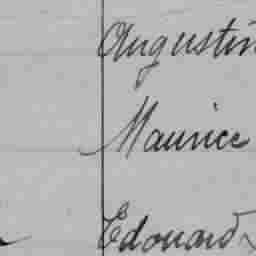 Augustin
Maurice
Edouard